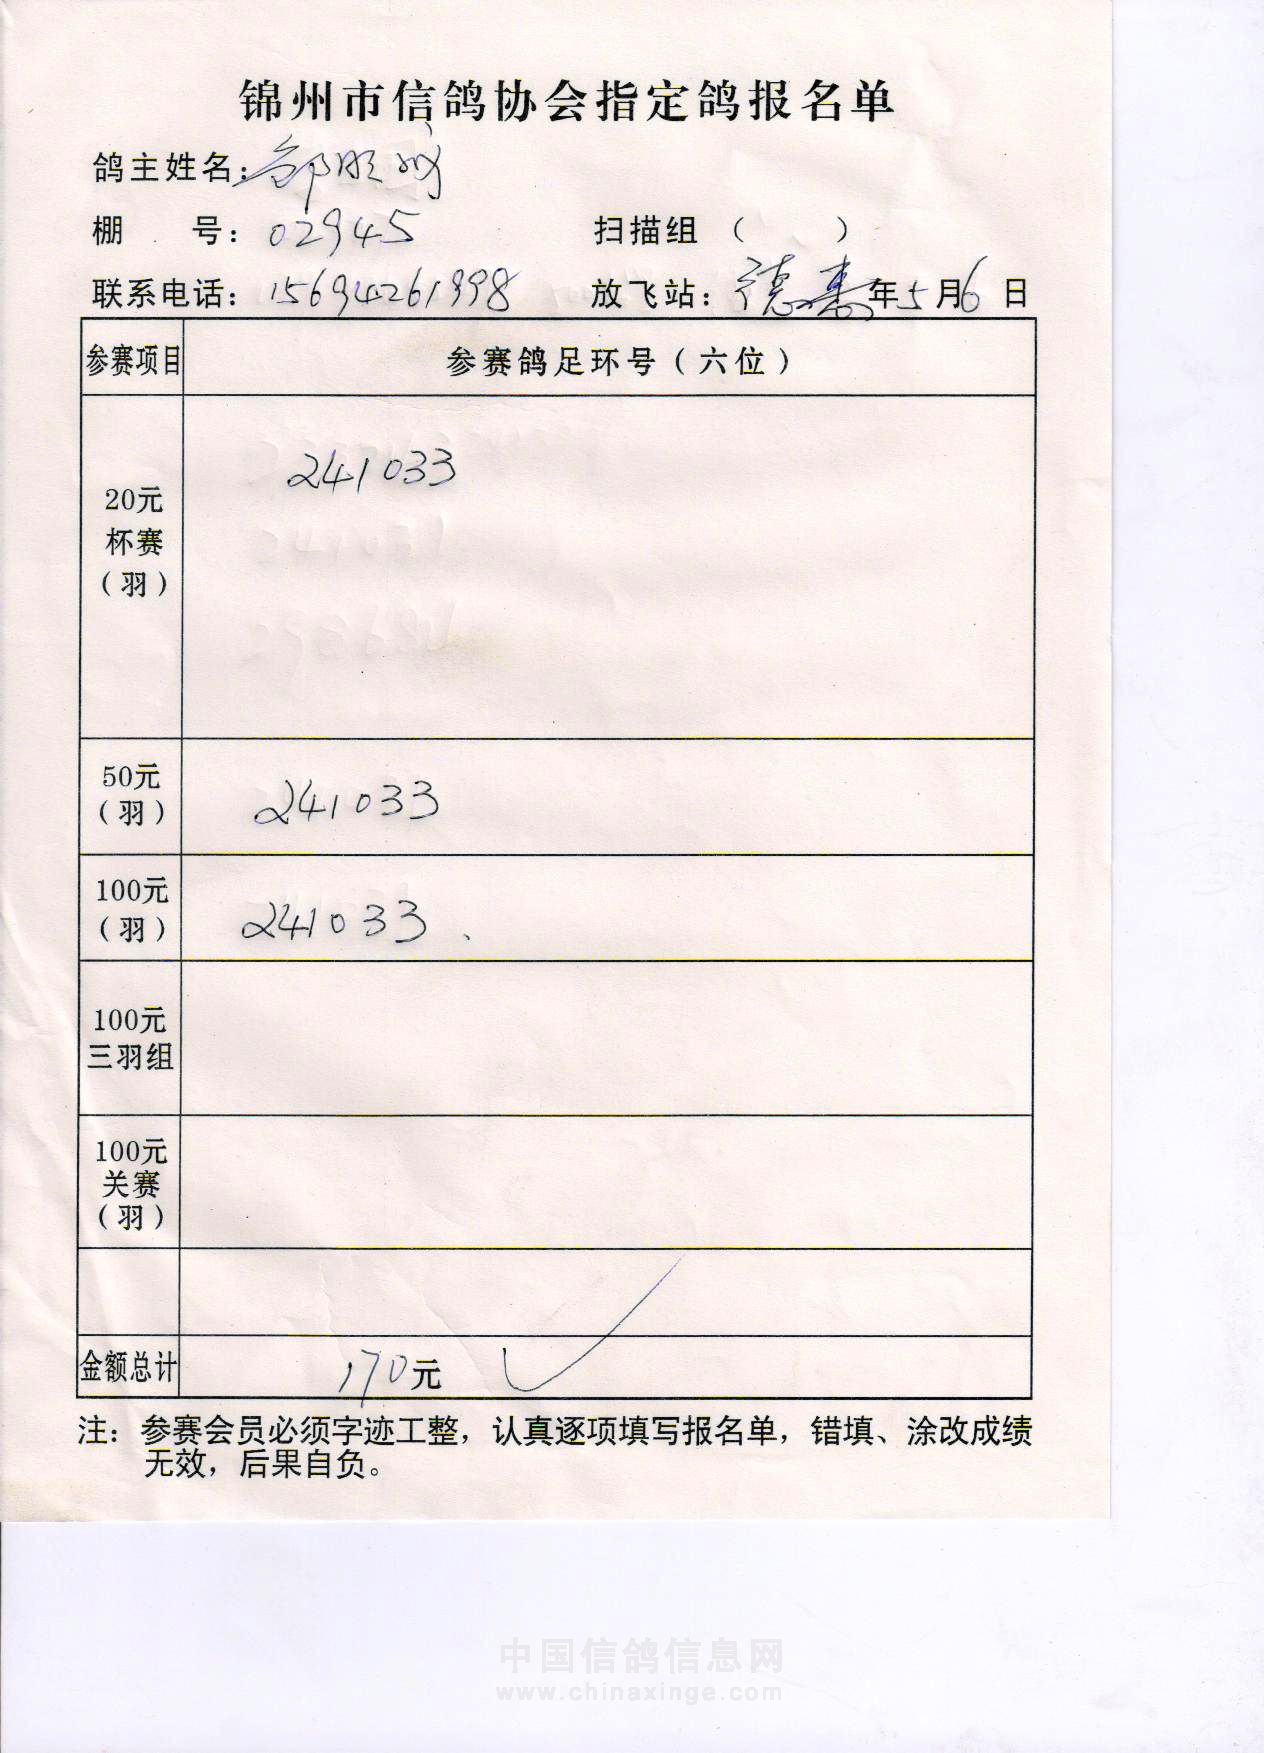 锦州市信鸽协会指定鸽报名单
鸽主姓名：
棚 号：02945 扫描组（ ）
联系电话：15694261998 放飞站：德惠 年5月6日
参赛项目 参赛鸽足环号（六位）
20元
杯赛
（羽）
241033
50元
（羽）
241033
100元
（羽）
241033、
100元
三羽组
100元
关赛
（羽）
金额总计 170元
注：参赛会员必须字迹工整，认真逐项填写报名单，错填、涂改成绩
无效，后果自负。
中国信鸽信息网
www.chinaxinge.com